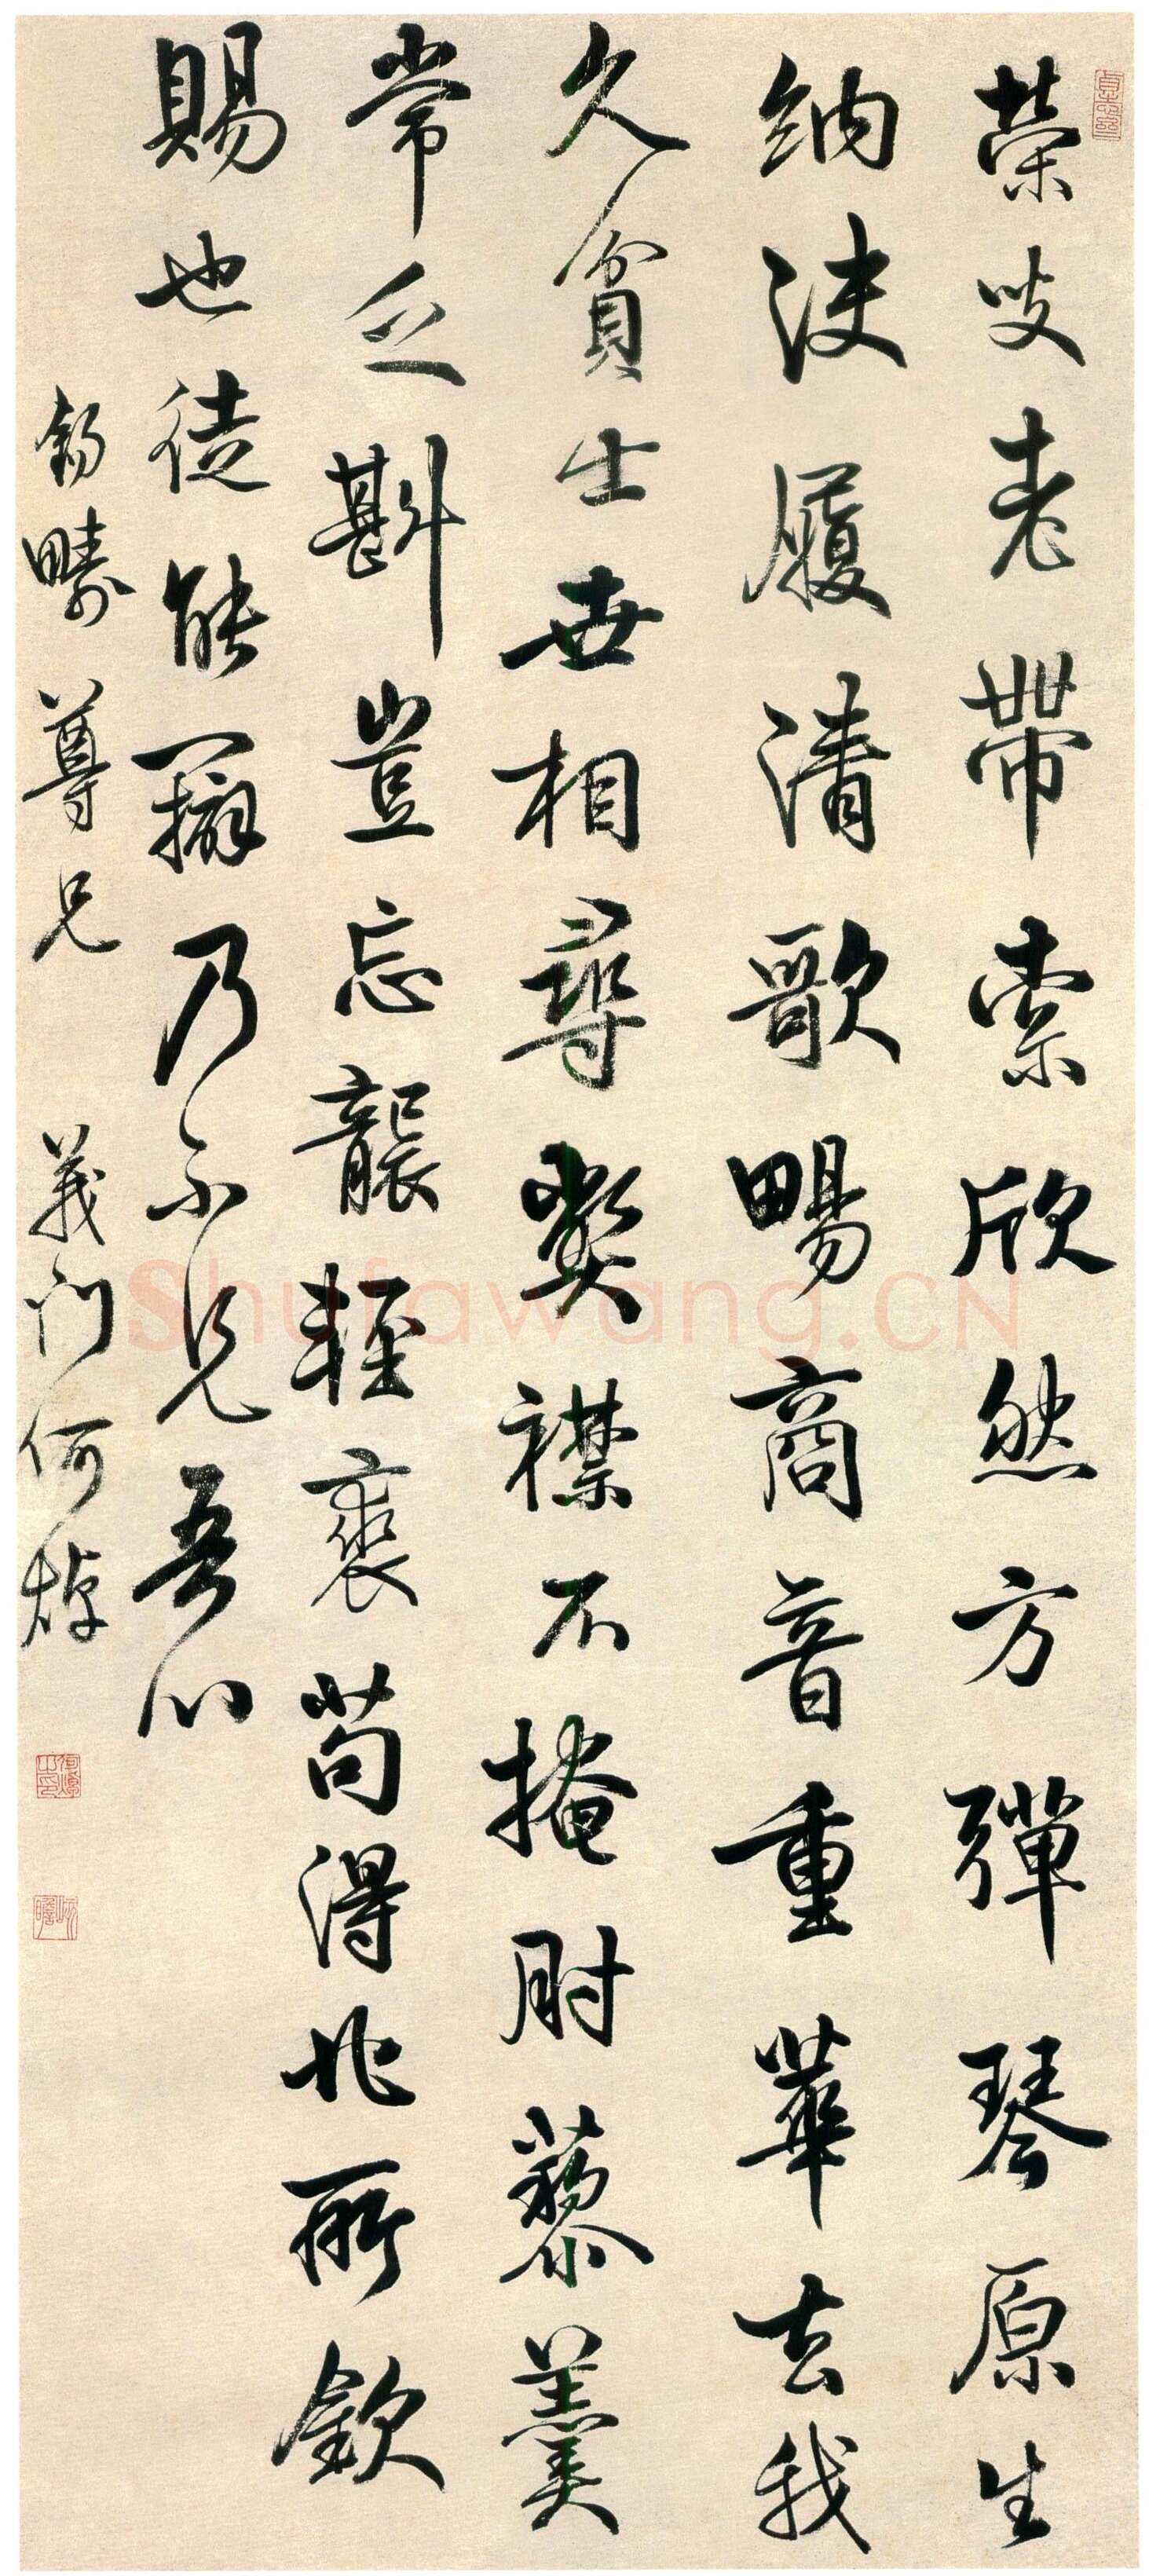 榮叟老帶索欣然方彈琴原生
納決履清歌暢商音重華去我
久貧士世相尋獘襟不掩肘藜羹
常乏斟豈忘襲輕裘苟得非所欽
賜也徒能辯乃不見吾心
錫疇尊兄 義門何焯
Shufawang.CN